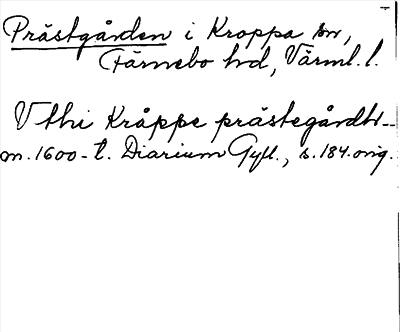 Prästgården i Kroppa sn,
Färnebo hd, Värml. l.
V thi Kråppe prästegårdh
om. 1600-t. Diarium Gyll., s. 184. orig.